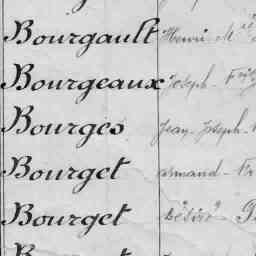 Bourgault Henri M
Bourgeaux Joseph
Bourges Jean Joseph
Bourget armand
Bourget Désiré